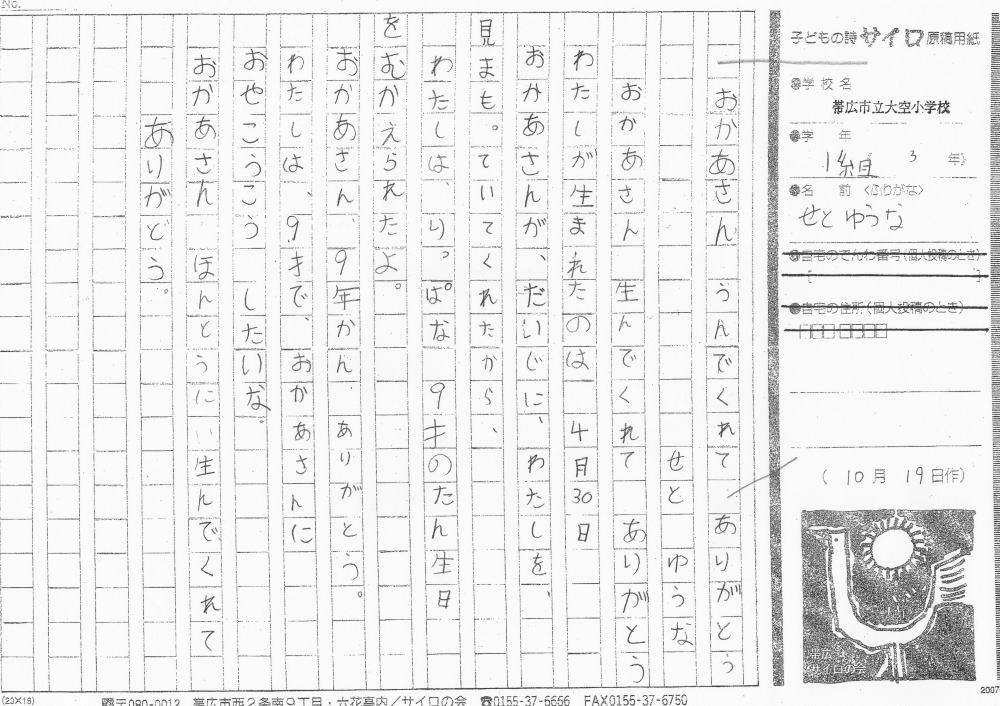 No.
おかあさん　うんでくれて　ありがとう
せと　ゆうな
おかあさん　生んでくれて　ありがとう
わたしが生まれたのは　4月30日
おかあさんが、だいじに、わたしを、
見まも。ていてくれたから、
わたしは、り。ぱな　9才のたん生日
をむかえられたよ。
おかあさん、9年かん、ありがとう。
わたしは、9才で、おかあさんに
おやこうこう　したいな。
おかあさん　ほんとうに　生んでくれて
ありがとう。
子どもの詩サイロ原稿用紙
学校名
帯広市立大空小学校
学　年
1組　3　年
名　前〈ふりがな〉
せと ゆうな
自宅のでんわ番号(個人投稿のとき)
自宅の住所(個人投稿のとき)
(10月 19日作)
帯広
サイロの会
(20×18)
〒080-0012　帯広市西2条南9丁目・六花亭内/サイロの会　☎0155-37-6666　FAX0155-37-6750
2007